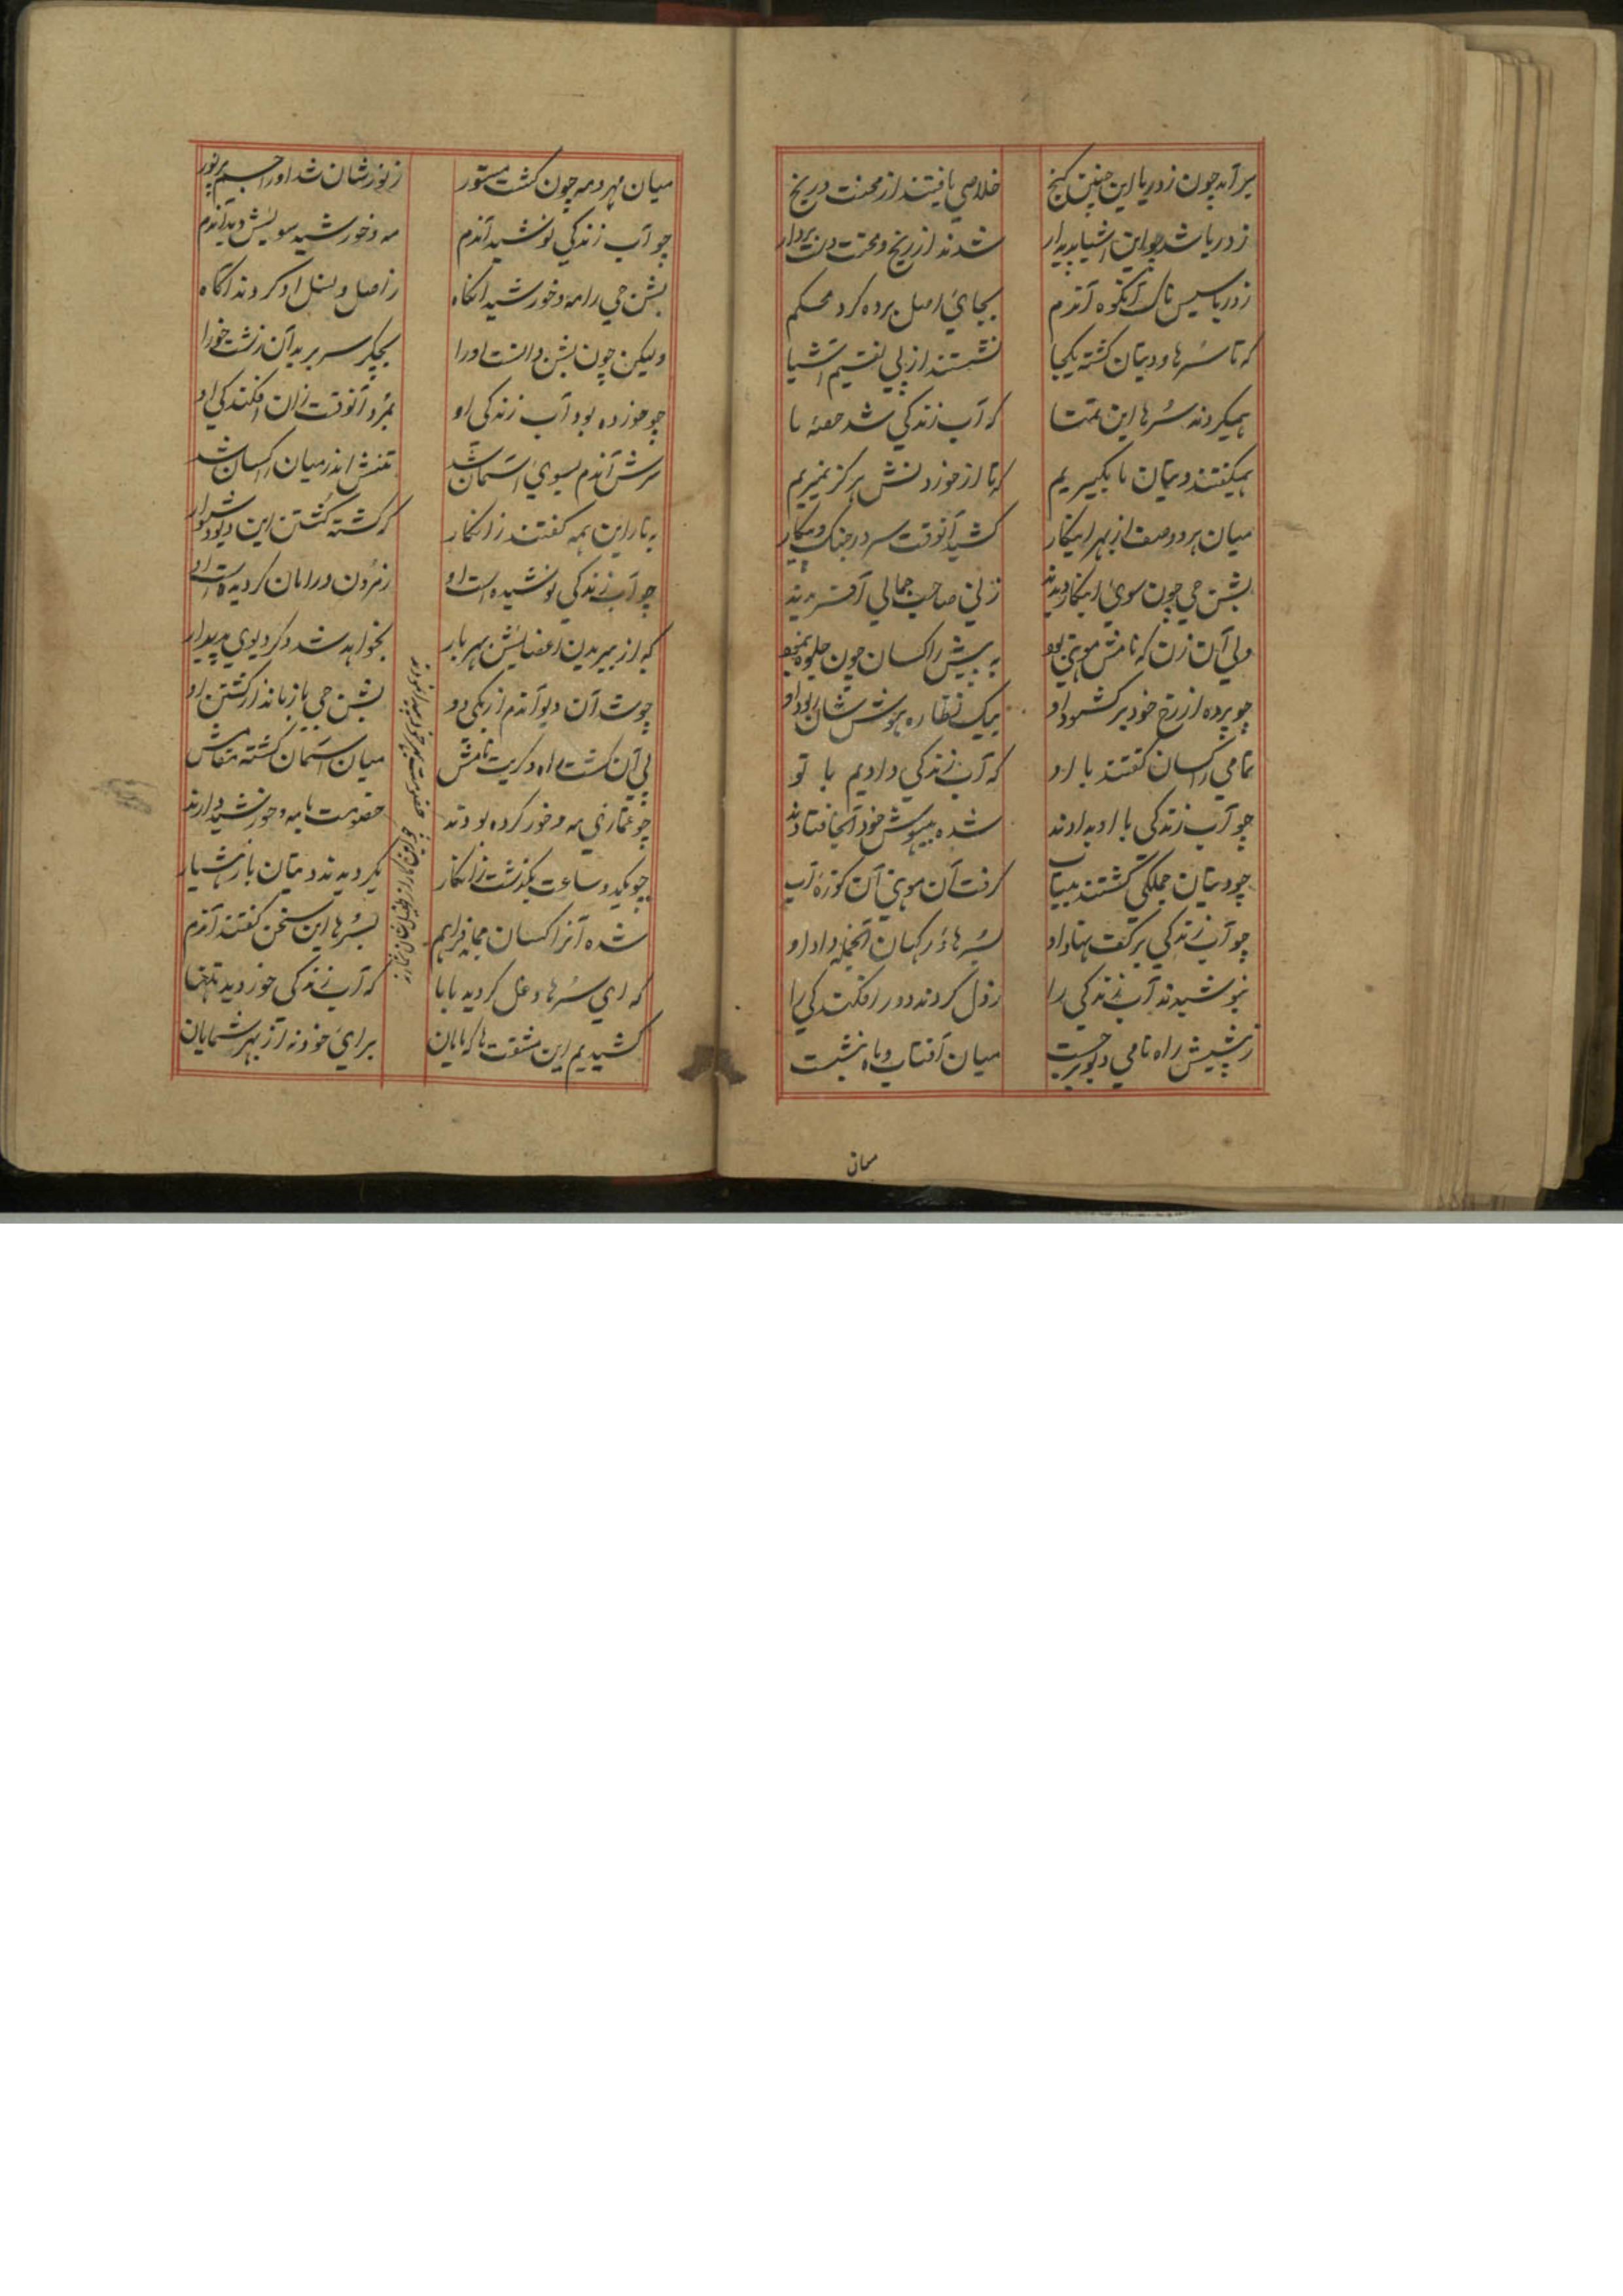 برآمد چون ز دریا این چنین گنج خلاصی یافتند از محنت و رنج
ز دریا شد چو این اشیا پدیدار شدند از رنج و محنت دست بردار
ز دریا سیس ناک آنکوه آندم بجای اصل برده کرد محکم
که تا سرها و دیتان گشته یکجا نشستند از پی تقسیم اشیا
همیکردند سرها این تمنا که آب زندگی شد حصهٔ ما
همیگفتند دیتان ما بگیریم که تا از خوردنش هرگز نمیریم
میان هر دو صف از بهر اینکار کشید آنوقت سر در جنگ و پیکار
بشن جی چون سوی اینکار دیدند زنی صاحب جمالی آفریدند
ولی آن زن که نامش موهنی بود به پیش راکسان چون جلوه بنمود
چو پرده از رخ خود بر گشود او بیک نظاره هوش شان ربود او
تمامی راکسان گفتند با او که آب زندگی دادیم با تو
چو آب زندگی با او بدادند شده بیهوش خود آنجا فتادند
چو دیتان جملگی گشتند بیتاب گرفت آن موهنی آن کوزهٔ آب
چو آب زندگی بر کف نهاد او بسرها در کهان آنجمله داد او
بنوشیدند آب زندگی را ز دل کردند دور افکندگی را
ز پیش راه نامی دیو برجست میان آفتاب و ماه بنشست
میان
میان مهر و مه چون گشت مستور ز نور شان شد او را جسم پر نور
چو آب زندگی نوشید آندم مه و خورشید سویش دید آندم
بشن جی را مه و خورشید آنگاه ز اصل و نسل او کردند آگاه
ولیکن چون بشن دانست او را بچکر سر برید آن زشت خو را
چو خورده بود آب زندگی او نمرد آنوقت زان افکندگی او
سرش آندم بسوی آسمان شد تنش اندر میان راکسان شد
به نارائن همه گفتند زانکار که گشته کشتن این دیو دشوار
چو آب زندگی نوشیده است او ز مردن در امان گردیده است او
که از ببریدن اعضایش هر بار نخواهد شد دگر دیوی پدیدار
چو شد آن دیو آندم از یکی دو بشن جی باز ماند از کشتن او
پی آن گشت راه و کیت نامش میان آسمان گشته مقامش
چو غمازی مه و خور کرده بودند خصومت با مه و خورشید دارند
چو یکدو ساعت بگذشت زانکار بگردیدند دیتان باز هشیار
شده آنراکسان یکجا فراهم بسرها این سخن گفتند آندم
که ای سرها دغل کردید با ما که آب زندگی خوردید تنها
کشیدیم این مشقت ها که مایان برای خود نه از بهر شمایان